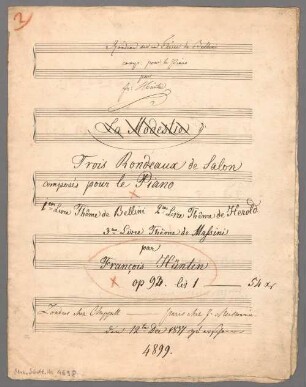 2
Rondeau sur un Thême de Bellini
comp. pour le Piano
par
La Modestie
Trois Rondeaux de Salon
composés pour le Piano
1er Livre Thême de Bellini 2me Livre Thême de Herold
3me Livre Thême de Massini
par
François Hünten
op 94. lis 1
Londres chez Chappell
Paris chez
1837
4899.